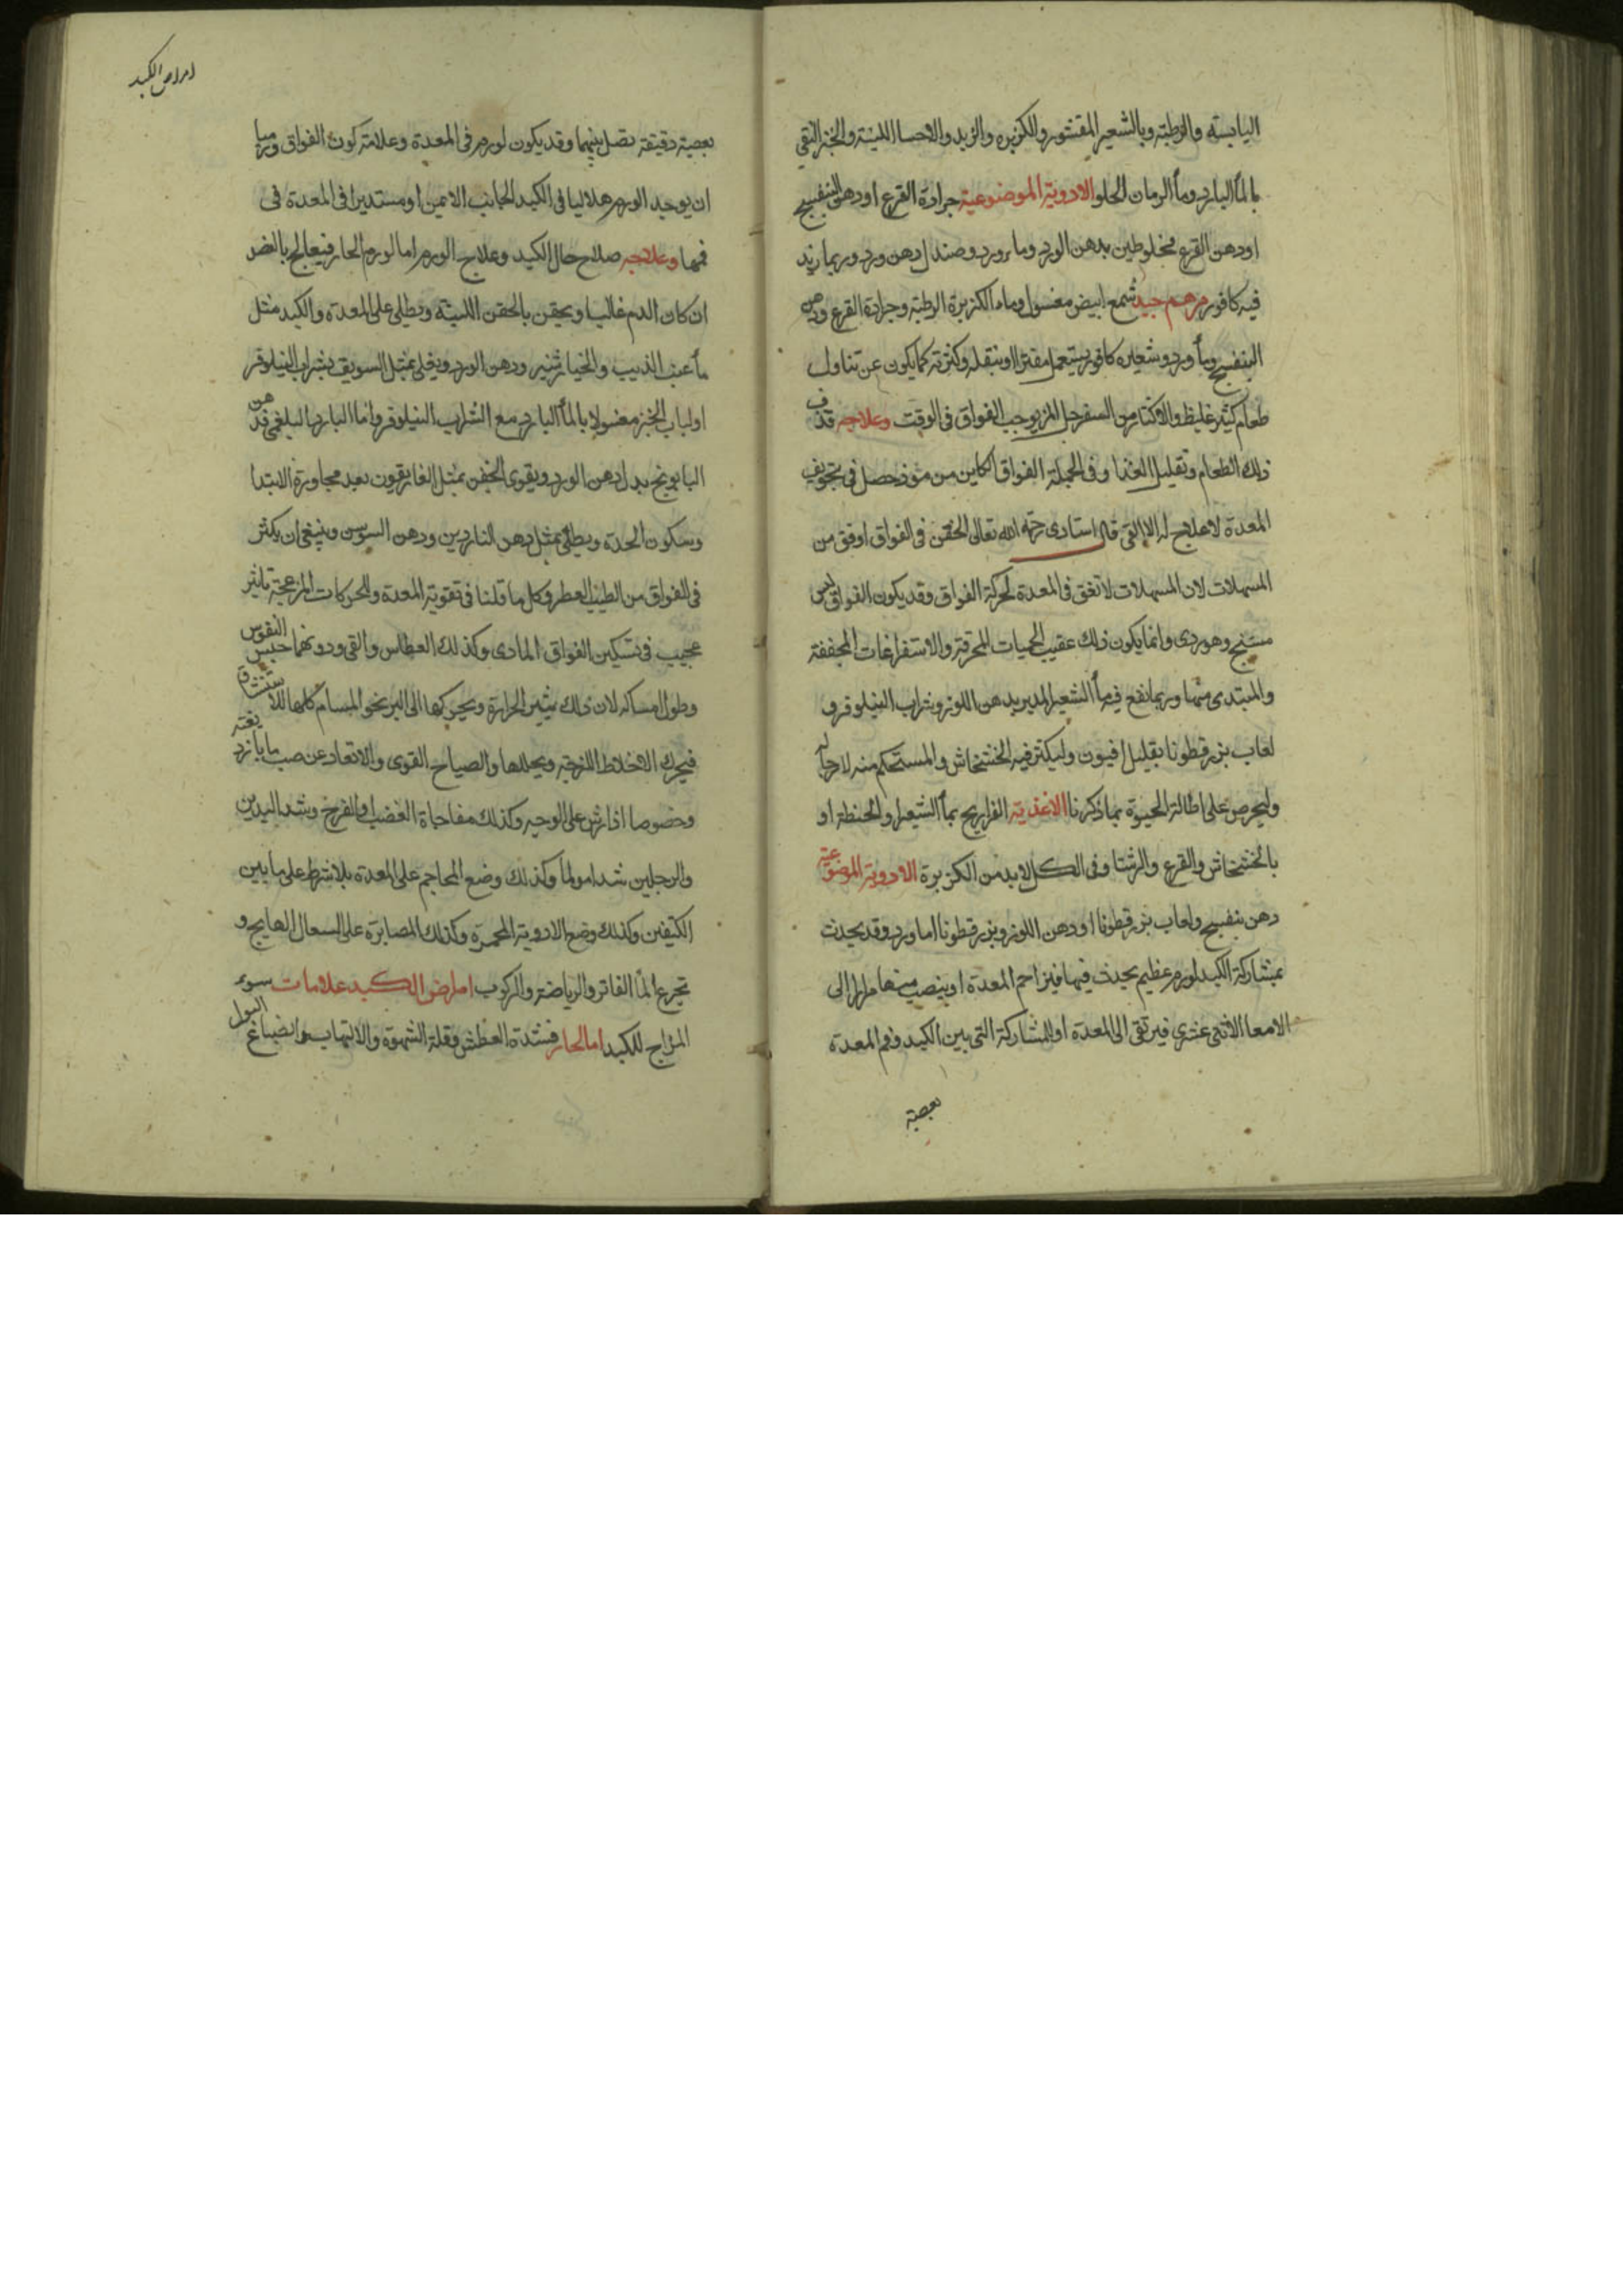 اليابسة والرطبة وبالشعير المقشور والكزبره والزبد والاحسا اللينة والخبز النقي
بالمأ البارد ومأ الرمان الحلو الادوية الموضوعية جرادة القرع او دهن البنفسج
او دهن القرع مخلوطين بدهن الورد وماء ورد وصندل دهن ورد وربما زيد
فيه كافور مرهم جيد شمع ابيض مغسول وماء الكزبرة الرطبة وجرادة القرع ودهن
البنفسج ومأ ورد وشعيره كافور يستعمل مفترا او بثقله وكثرته كما يكون عن تناول
طعام كثير غليظ والاكثار من السفرجل المز يوجب الفواق فى الوقت وعلاجه قذف
ذلك الطعام وتقليل الغذا وفى الجملة الفواق الكاين من موذ حصل فى تجويف
المعدة لا علاج له الا القى قال استادى رحمه الله تعالى الحقن فى الفواق اوفق من
المسهلات لان المسهلات لا تغق فى المعدة لحركة الفواق وقد يكون الفواق ليس
مسنج وهو ردى وانما يكون ذلك عقيب الحميات المحرقة والاستفراغات المجففة
والمبتدى منها وربما نفع فيه مأ الشعير المدبر بدهن اللوز وشراب النيلوفر و
لعاب بزرقطونا بقليل افيون وليكثر فيه الخشخاش والمستحكم منه لا حيلة له
وليحرص على اطالة الحيوة بما ذكرنا الاغذية الفراريج بمأ الشعير او الحنطة او
بالخشخاش والقرع والرشتا وفى الكل لا بد من الكزبرة الادوية الموضوعية
دهن بنفسج ولعاب بزرقطونا او دهن اللوز وبزرقطونا اما ورد وقد يحدث
بمشاركة الكبد لورم عظيم يحدث فيها فيزاحم المعدة او ينصب منها مرار الى
الامعا الاثنى عشرى فيرتقى الى المعدة او للمشاركة التى بين الكبد وفم المعدة
بعصبة
امراض الكبد
بعصبة دقيقة تصل بينهما وقد يكون لورم فى المعدة وعلامة كون الفواق ورميا
ان يوجد الورم هلاليا فى الكبد الجانب الايمن او مستديرا فى المعدة فى
فمها وعلاجه صلاح حال الكبد وعلاج الورم اما الورم الحار فيعالج بالفصد
ان كان الدم غالبا ويحقن بالحقن اللينة ويطلى على المعدة والكبد مثل
مأ عنب الذيب والخيارشنبر ودهن الورد ويغذى بمثل السويق بشراب النيلوفر
او لباب الخبز مغسولا بالمأ البارد مع الشراب النيلوفر واما البارد البلغمى فدهن
البابونج بدل دهن الورد ويقوى الحقن بمثل الغاريقون بعد مجاوزة الابتدا
وسكون الحدة ويطلى بمثل دهن الناردين ودهن السوسن وينبغى ان يكثر
فى الفواق من الطيب العطر وكل ما قلنا فى تقوية المعدة وللحركات المزعجة تاثير
عجيب فى تسكين الفواق المادى وكذلك العطاس والقى ودونهما حبس النفوس
وطول امساكه لان ذلك يثير الحرارة ويحركها الى البر نحو المسام كلها للاستنشاق
فيحرك الاخلاط اللزجة ويحللها والصياح القوى والارتعاد عن صب ما بارد بغتة
وخصوصا اذا رش على الوجه وكذلك مفاجاة الغضب والفرح وشد اليدين
والرجلين شدا مولما وكذلك وضع المحاجم على المعدة بلا شرط على ما بين
الكتفين وكذلك وضع الادوية المحمرة وكذلك المصابرة على السعال الهايج و
تجرع المأ الفاتر والرياضة والركوب امراض الكبد علامات سوء
المزاج للكبد اما الحار فشدة العطش وقلة الشهوة والالتهاب وانصباغ البول